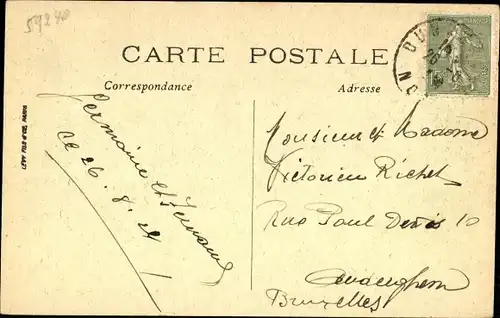 59240
CARTE POSTALE
Correspondance
Adresse
LEVY FILS & Cie, PARIS
Germaine et Fernand
ce 26.8.24
Monsieur et Madame
Victorien Richet
Rue Paul Devis 10
Bruxelles